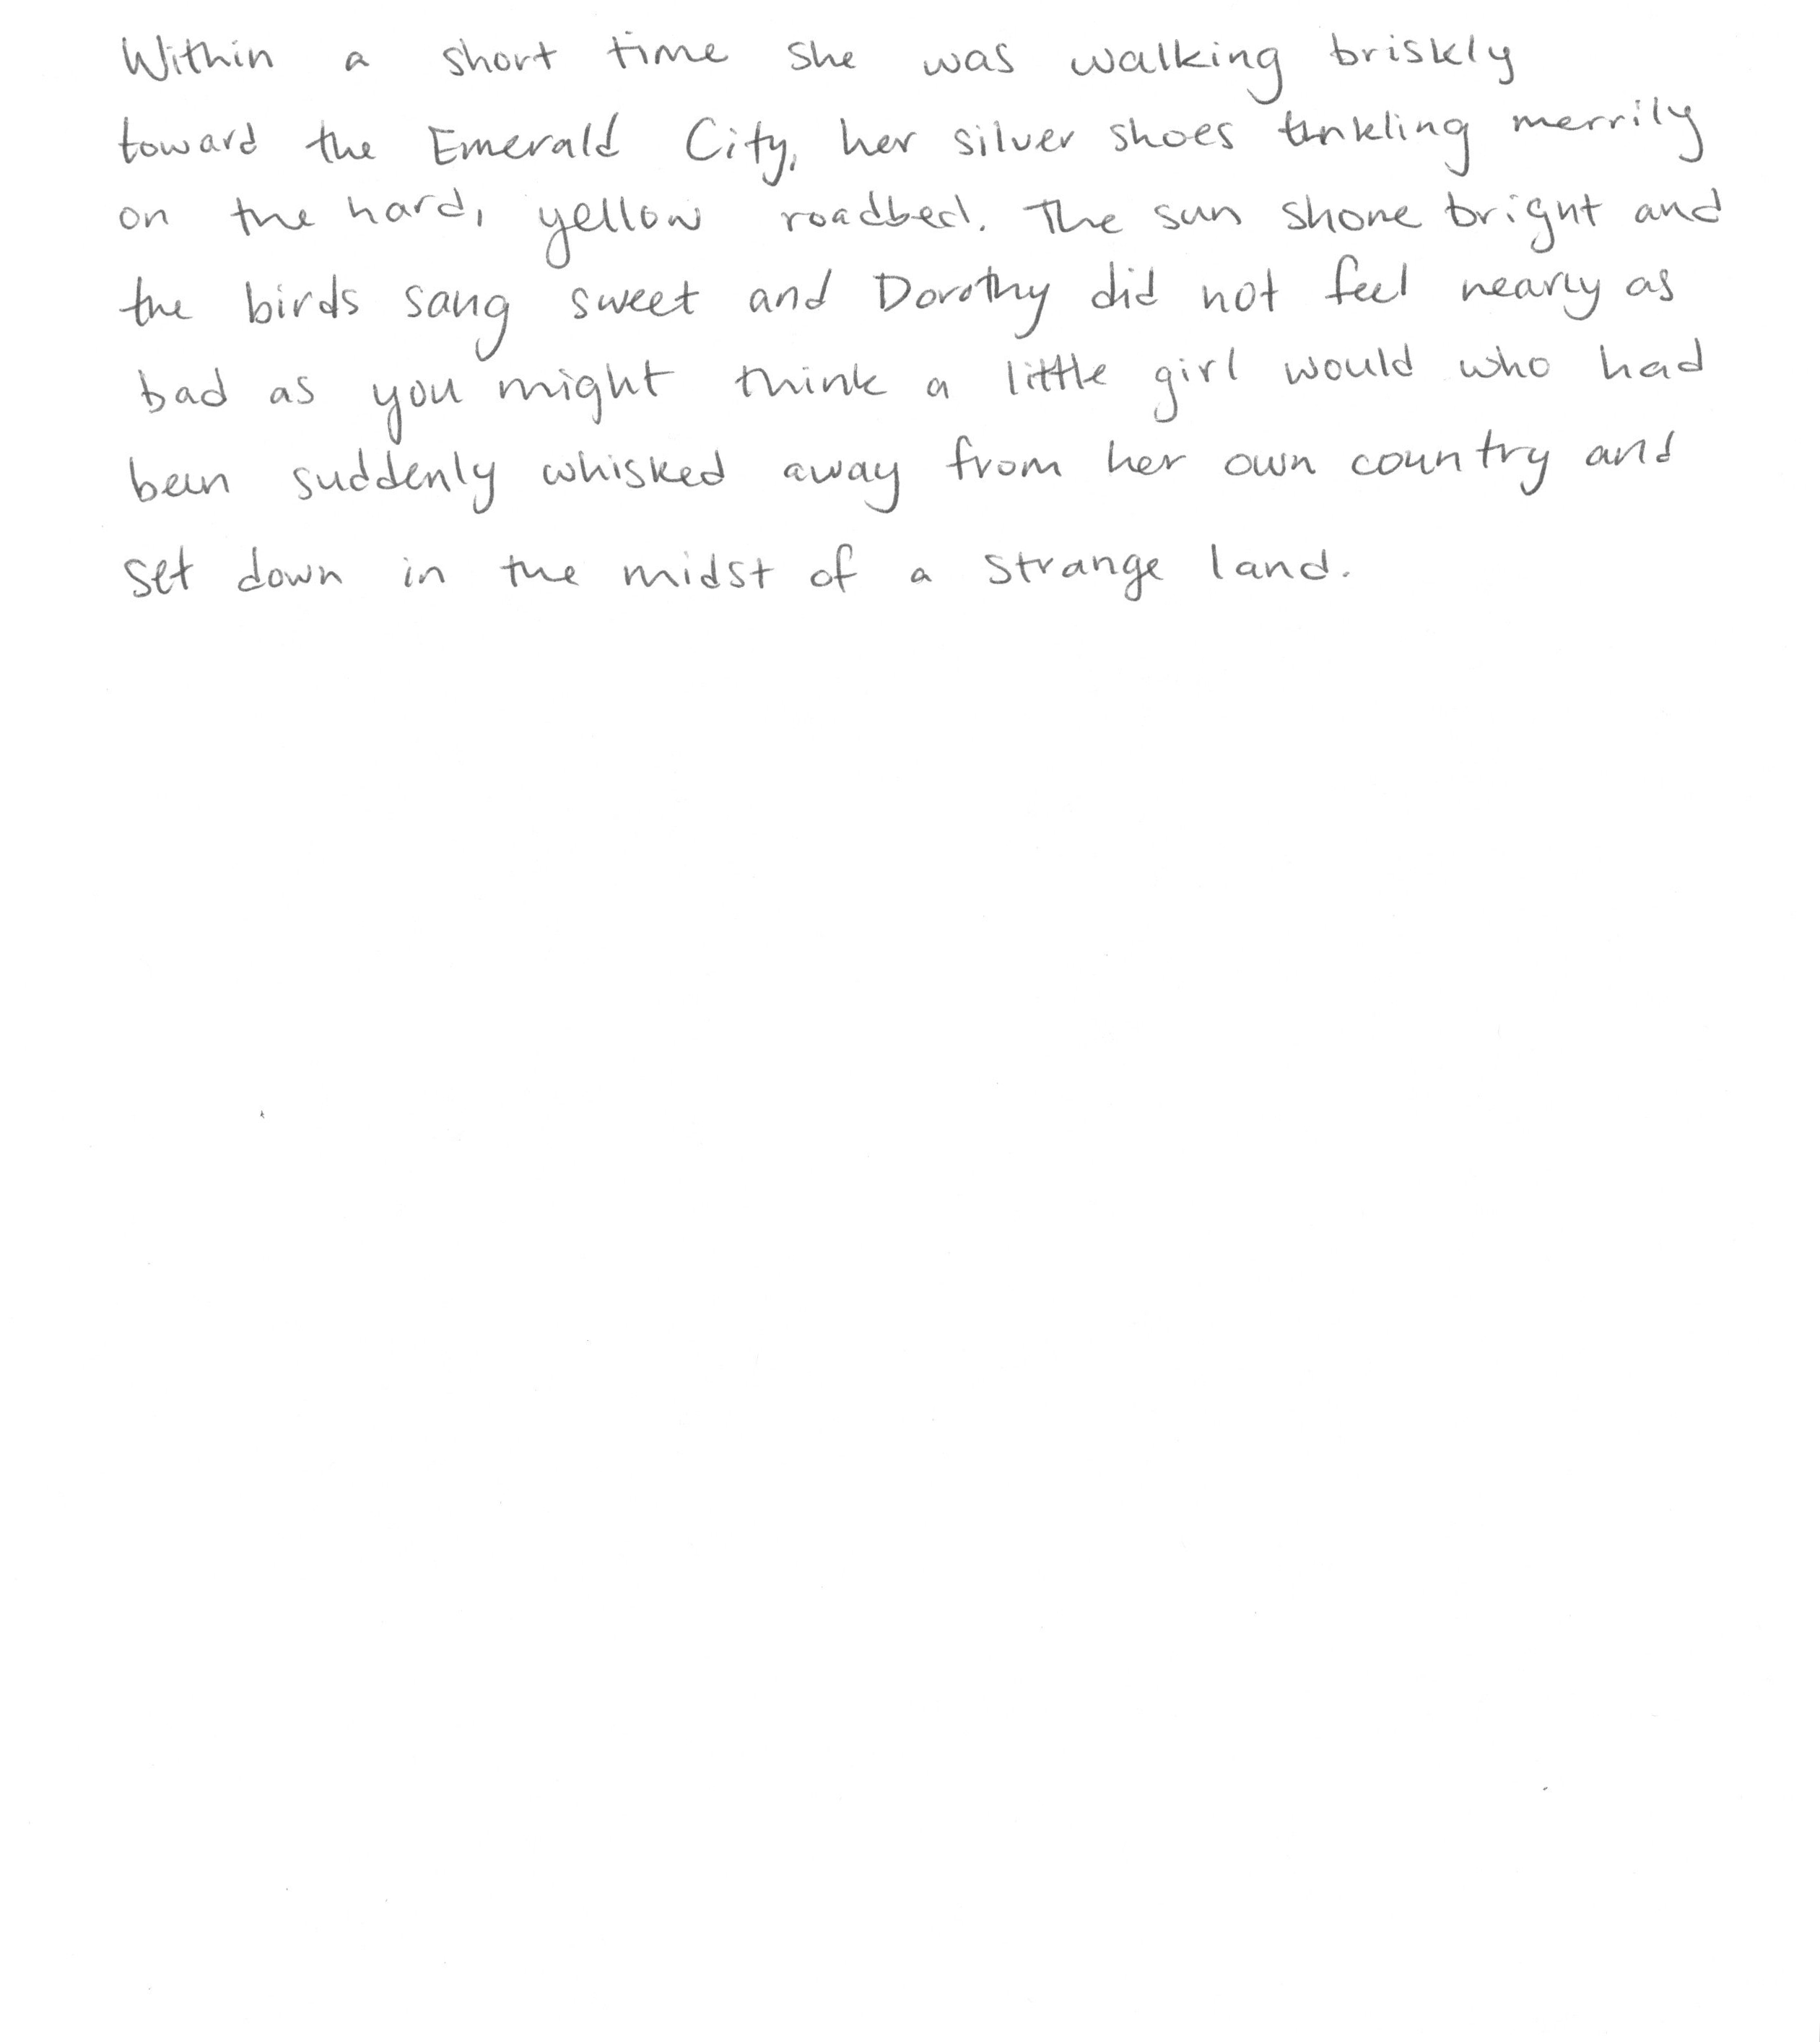 Within a short time she was walking briskly
toward the Emerald City, her silver shoes tinkling merrily
on the hard, yellow roadbed. The sun shone bright and
the birds sang sweet and Dorothy did not feel nearly as
bad as you might think a little girl would who had
been suddenly whisked away from her own country and
set down in the midst of a strange land.